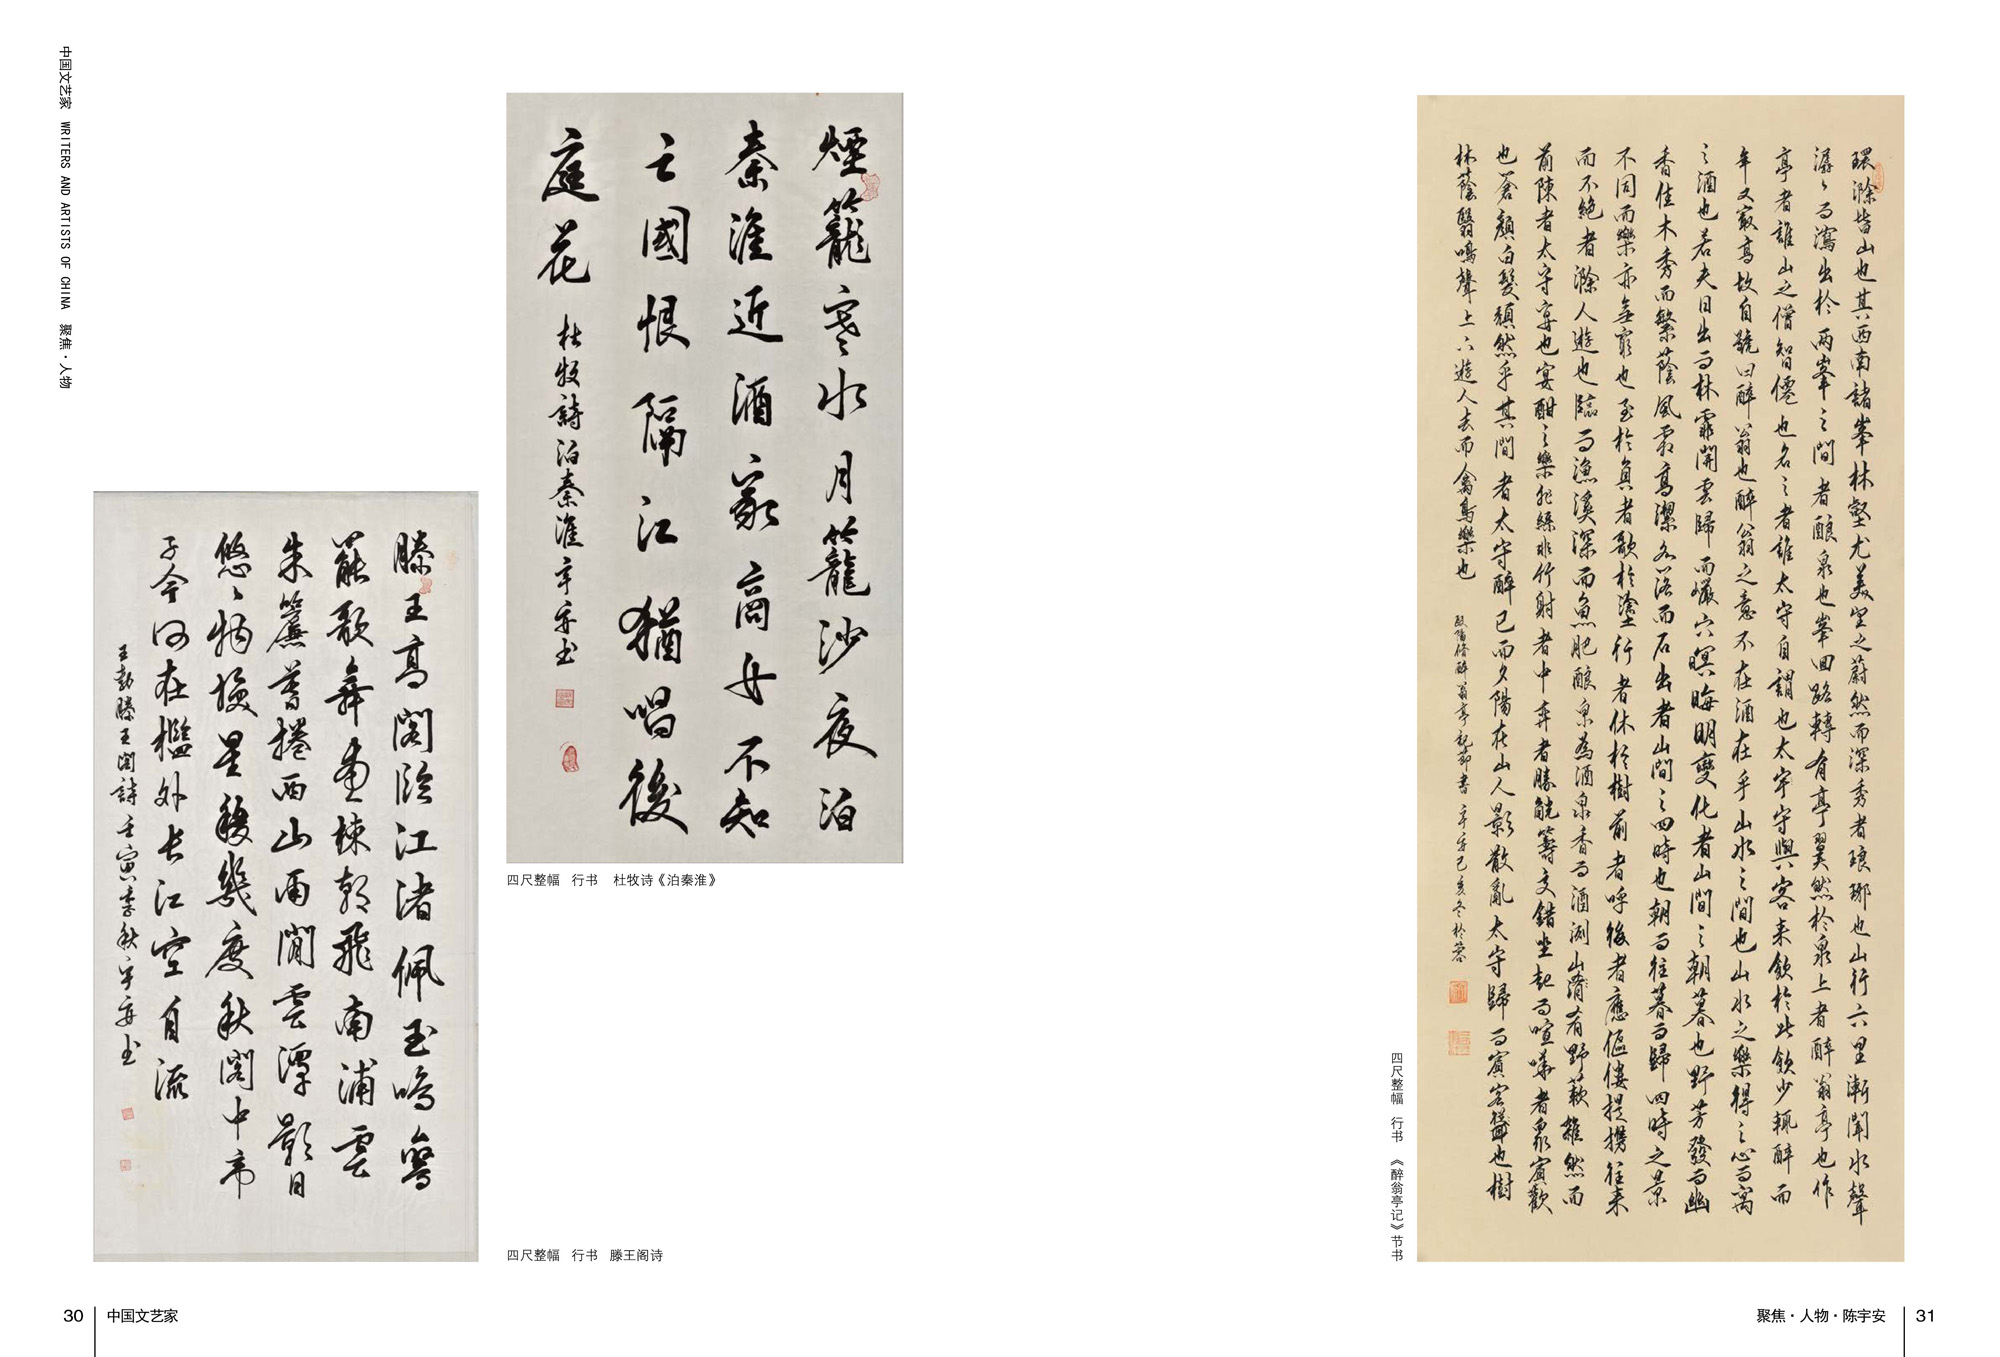 中国文艺家 WRITERS AND ARTISTS OF CHINA 聚焦·人物
煙籠寒水月籠沙夜泊
秦淮近酒家商女不知
亡國恨隔江猶唱後
庭花
杜牧詩泊秦淮宇安书
四尺整幅 行书 杜牧诗《泊秦淮》
滕王高閣臨江渚佩玉鳴鸞
罷歌舞畫棟朝飛南浦雲
朱簾暮捲西山雨閒雲潭影日
悠悠物換星移幾度秋閣中帝
子今何在檻外長江空自流
王勃滕王閣詩壬寅季秋宇安书
四尺整幅 行书 滕王阁诗
30 中国文艺家
環滁皆山也其西南諸峯林壑尤美望之蔚然而深秀者琅琊也山行六里漸聞水聲
潺潺而瀉出於兩峯之間者釀泉也峯回路轉有亭翼然於泉上者醉翁亭也作
亭者誰山之僧智僊也名之者誰太守自謂也太守與客来飲於此飲少輒醉而
年又最高故自號曰醉翁也醉翁之意不在酒在乎山水之間也山水之樂得之心而寓
之酒也若夫日出而林霏開雲歸而巖穴暝晦明變化者山間之朝暮也野芳發而幽
香佳木秀而繁蔭風霜高潔水落而石出者山間之四時也朝而往暮而歸四時之景
不同而樂亦無窮也至於負者歌於塗行者休於樹前者呼後者應傴僂提攜往来
而不絕者滁人遊也臨而漁溪深而魚肥釀泉為酒泉香而酒洌山肴野蔌雜然而
前陳者太守宴也宴酣之樂非絲非竹射者中弈者勝觥籌交錯坐起而喧嘩者衆賓歡
也蒼顏白髮頹然乎其間者太守醉已而夕陽在山人影散亂太守歸而賓客也樹
林蔭翳鳴聲上下遊人去而禽鳥樂也
歐陽修醉翁亭記節書宇安己亥冬於蓉
四尺整幅 行书 《醉翁亭记》节书
聚焦·人物·陈宇安 31